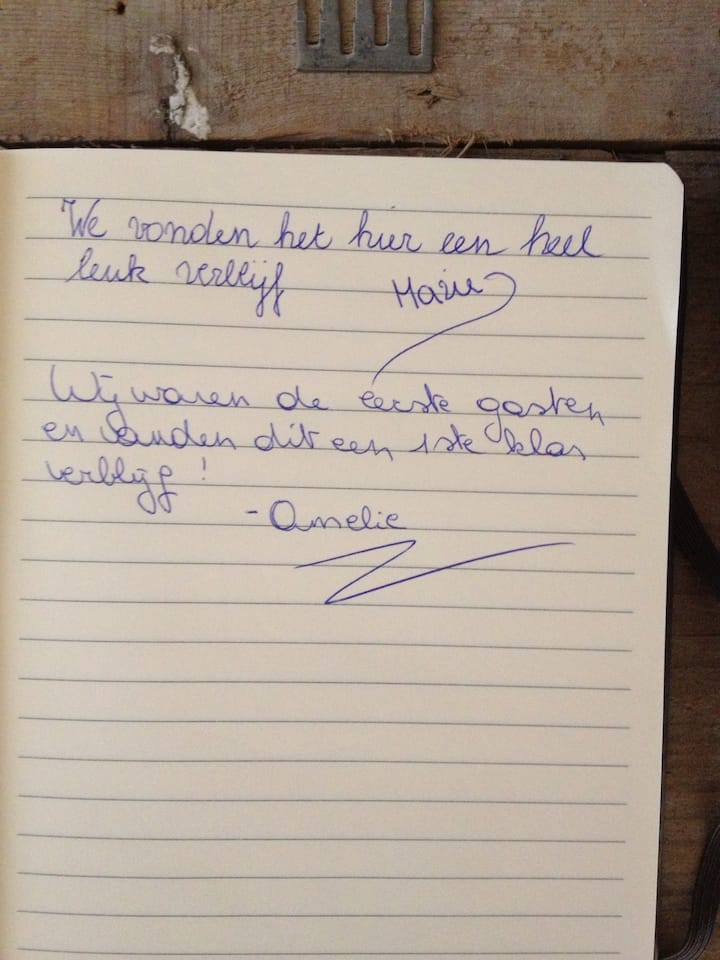 We vonden het hier een heel
leuk verblijf Marie
Wij waren de eerste gasten
en vonden dit een 1ste klas
verblijf !
- Amelie